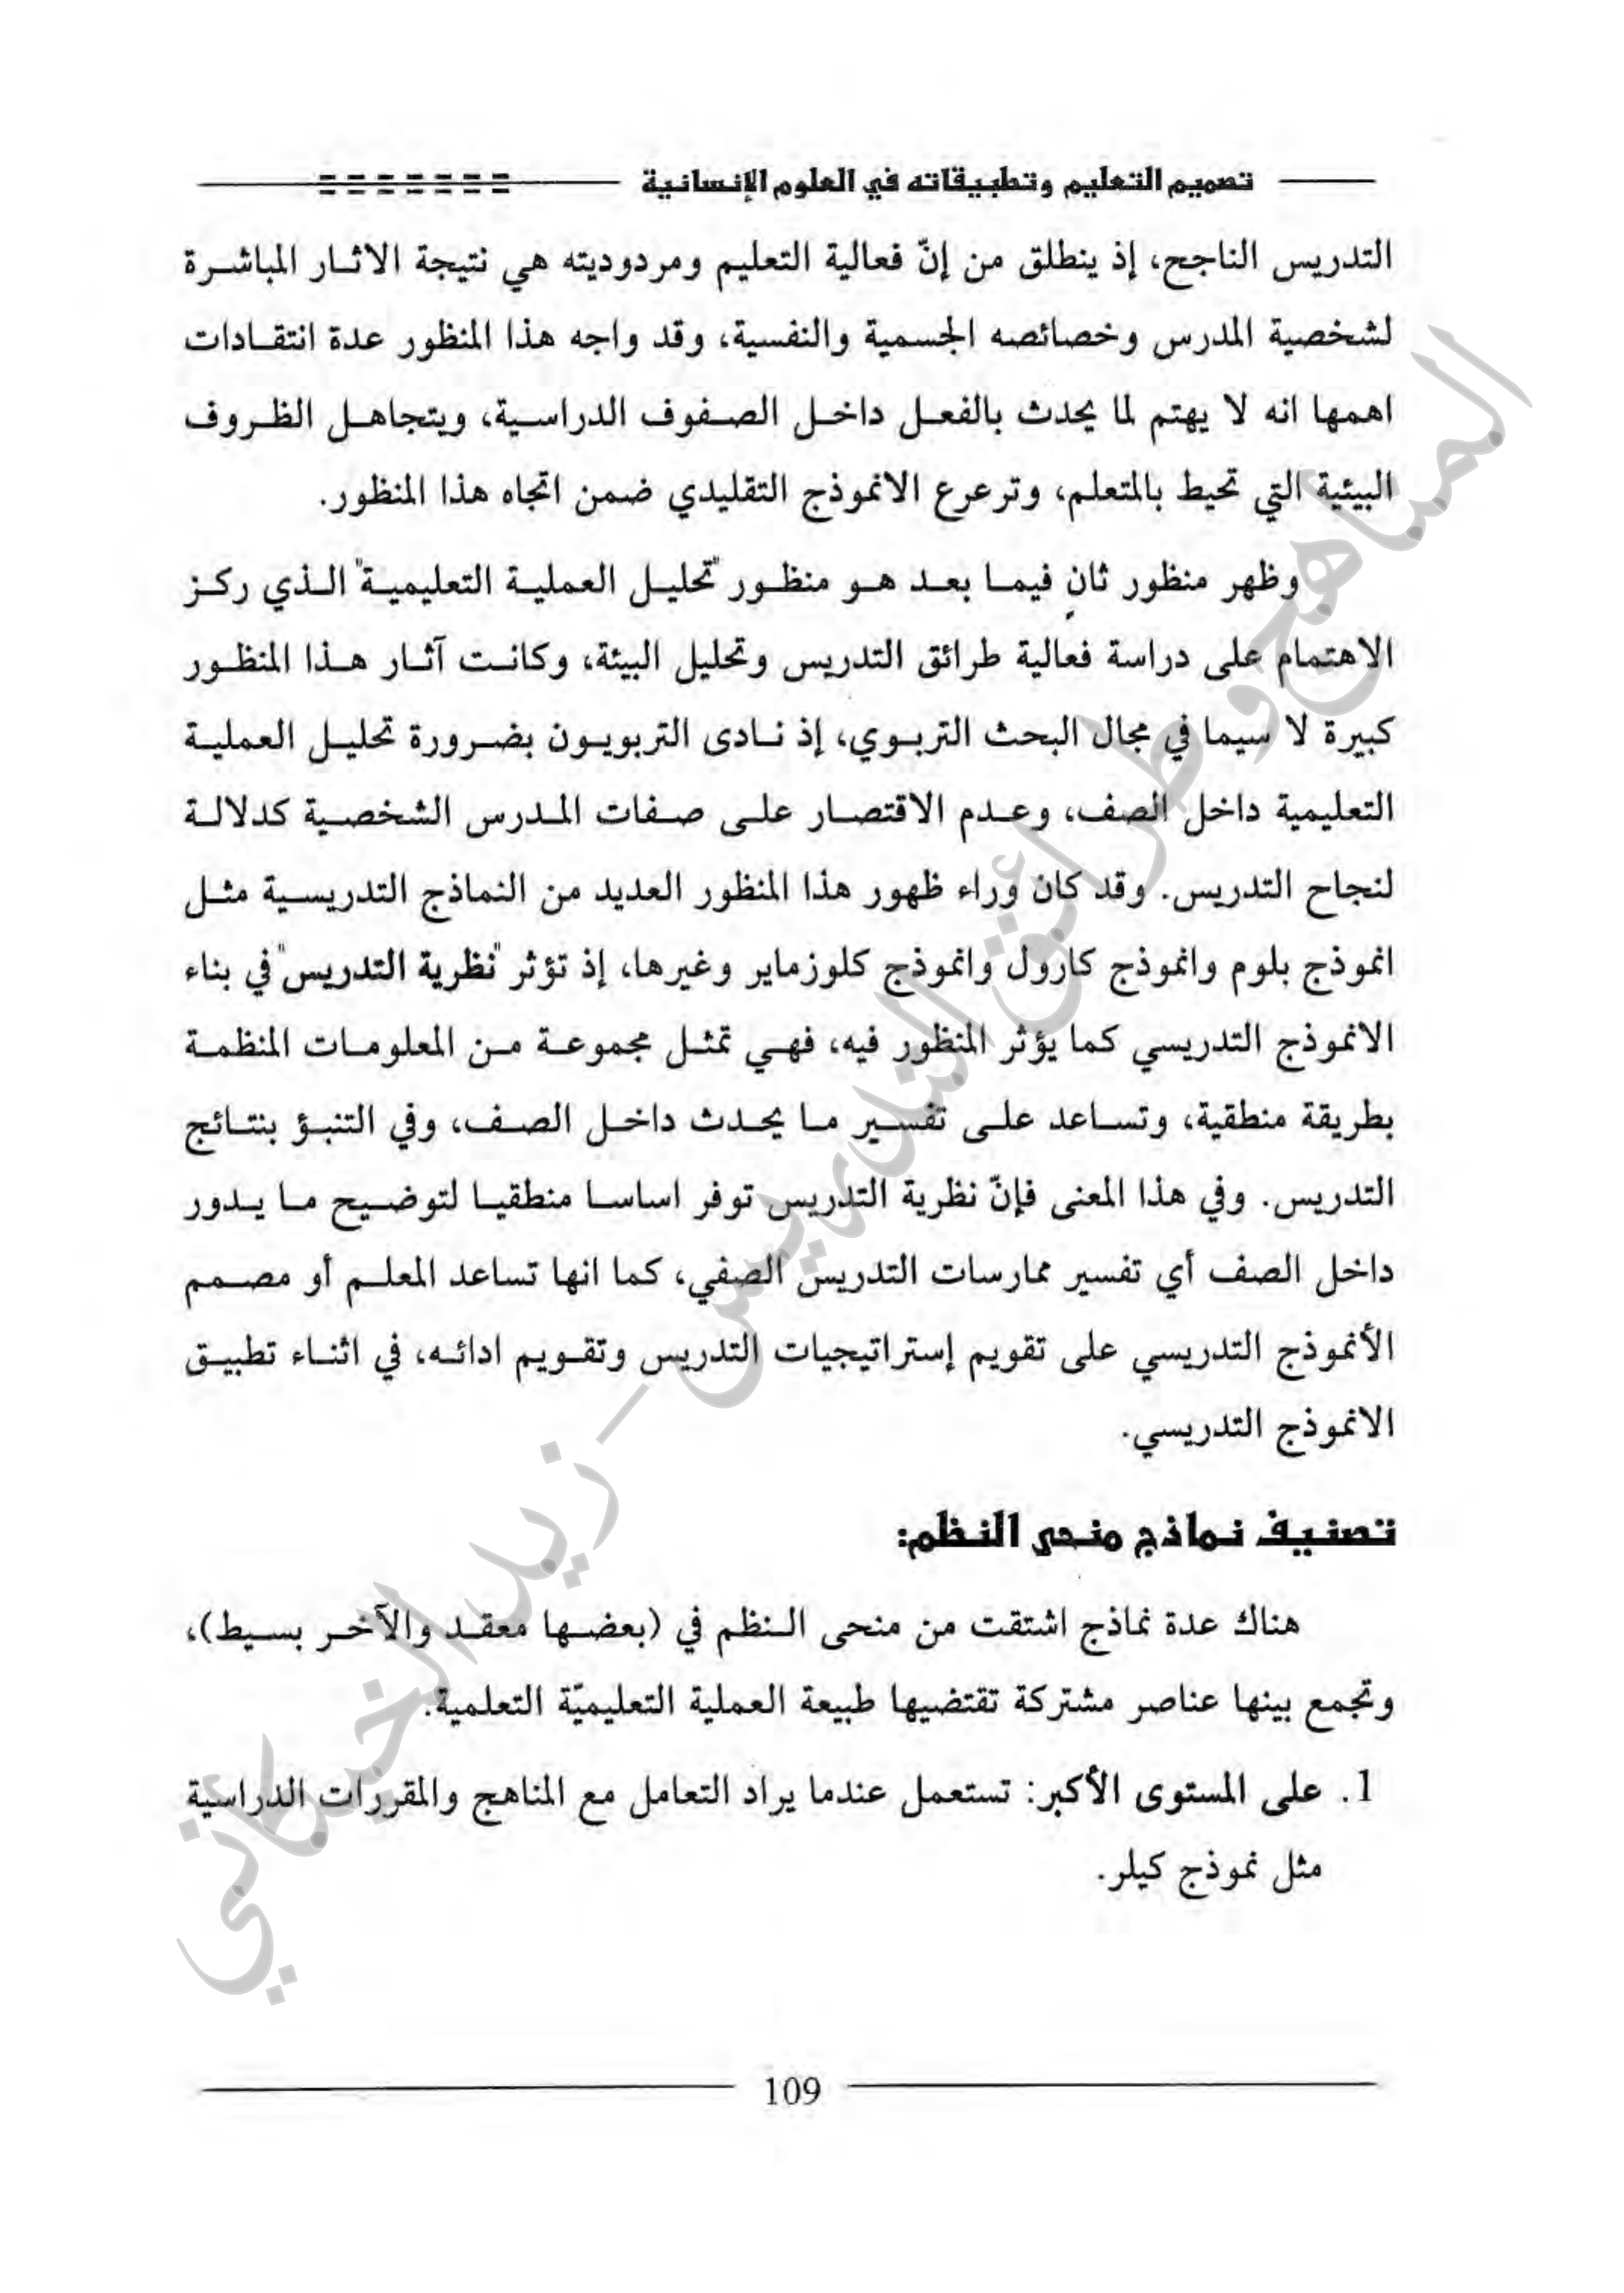 تصميم التعليم وتطبيقاته في العلوم الإنسانية
التدريس الناجح، إذ ينطلق من إنّ فعالية التعليم ومردوديته هي نتيجة الاثار المباشرة
لشخصية المدرس وخصائصه الجسمية والنفسية، وقد واجه هذا المنظور عدة انتقادات
اهمها انه لا يهتم لما يحدث بالفعل داخل الصفوف الدراسية، ويتجاهل الظروف
البيئية التي تحيط بالمتعلم، وترعرع الانموذج التقليدي ضمن اتجاه هذا المنظور.
وظهر منظور ثانٍ فيما بعد هو منظور "تحليل العملية التعليمية" الذي ركز
الاهتمام على دراسة فعالية طرائق التدريس وتحليل البيئة، وكانت آثار هذا المنظور
كبيرة لا سيما في مجال البحث التربوي، إذ نادى التربويون بضرورة تحليل العملية
التعليمية داخل الصف، وعدم الاقتصار على صفات المدرس الشخصية كدلالة
لنجاح التدريس. وقد كان وراء ظهور هذا المنظور العديد من النماذج التدريسية مثل
انموذج بلوم وانموذج كارول وانموذج كلوزماير وغيرها، إذ تؤثر "نظرية التدريس" في بناء
الانموذج التدريسي كما يؤثر المنظور فيه، فهي تمثل مجموعة من المعلومات المنظمة
بطريقة منطقية، وتساعد على تفسير ما يحدث داخل الصف، وفي التنبؤ بنتائج
التدريس. وفي هذا المعنى فإنّ نظرية التدريس توفر اساسا منطقيا لتوضيح ما يدور
داخل الصف أي تفسير ممارسات التدريس الصفي، كما انها تساعد المعلم أو مصمم
الأنموذج التدريسي على تقويم إستراتيجيات التدريس وتقويم ادائه، في اثناء تطبيق
الانموذج التدريسي.
تصنيف نماذج منحى النظم:
هناك عدة نماذج اشتقت من منحى النظم في (بعضها معقد والآخر بسيط)،
وتجمع بينها عناصر مشتركة تقتضيها طبيعة العملية التعليميّة التعلمية.
1. على المستوى الأكبر: تستعمل عندما يراد التعامل مع المناهج والمقررات الدراسية
مثل نموذج كيلر.
109
المناهج وطرائق التدريس – زيد الخيكاني